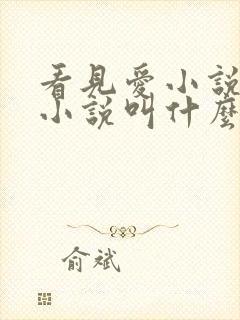 看見愛小說
小說叫什麼
俞斌